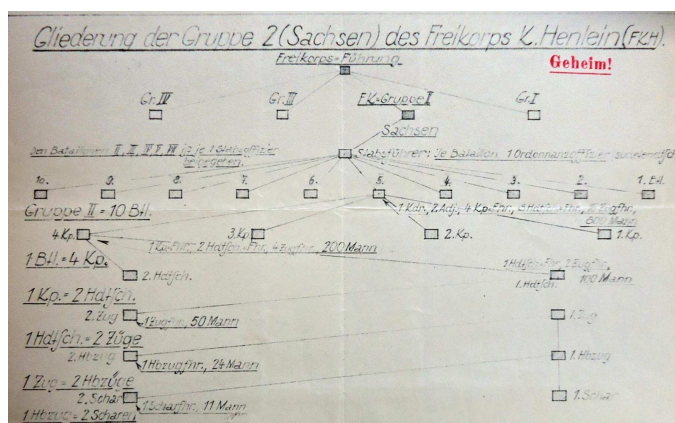 Gliederung der Gruppe 2 (Sachsen) des Freikorps K. Henlein (FKH).
Geheim!
Freikorps=Führung
Gr. IV Gr. III F.K.=Gruppe II Gr. I
Sachsen
Den Bataillonen je 1 Stabsoffizier
beigegeben.
Stabsführer: Je Bataillon 1 Ordonnanzoffizier
10. 9. 8. 7. 6. 5. 4. 3. 2. 1. Btl.
Gruppe II = 10 Btl.
1 Kdr., 2 Adj., 4 Kp.=Fhr.,
800 Mann
4 Kp. 3. Kp. 2. Kp. 1. Kp.
1 Kp.Fhr., 2 Hdtsch=Fhr., 4 Zugfhr., 200 Mann
1 Btl. = 4 Kp.
2. Hdtsch.
1 Hdtsch=Fhr. 2 Zugfhr.
100 Mann
1. Hdtsch.
1 Kp. = 2 Hdtsch.
2. Zug 1 Zugfhr., 50 Mann 1. Zug
1 Hdtsch. = 2 Züge
2. Hbzug 1 Hbzugfhr., 24 Mann 1. Hbzug
1 Zug = 2 Hbzüge
2. Schar 1 Scharfhr., 11 Mann 1. Schar
1 Hbzug = 2 Scharen